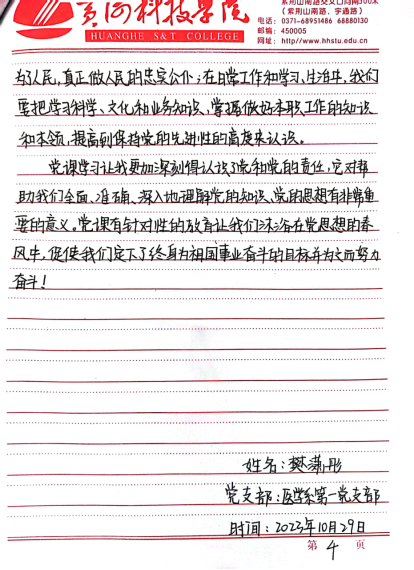 紫荆山南路交叉口向南300米
黄河科技学院
(紫荆山南路、宇通路)
电话: 0371-68951486 68880130
邮编: 450005
HUANGHE S&T COLLEGE
网址: http://www.hhstu.edu.cn
为了人民,真正做人民的忠实公仆;在日常工作和学习生活中,我们
要把学习科学、文化和业务知识,掌握做好本职工作的知识
和本领,提高到保持党的先进性的高度来认识。
党课学习让我更加深刻得认识了党和党的责任,它对帮
助我们全面、准确、深入地理解党的知识、党的思想有非常重
要的意义。党课有针对性的教育让我们沐浴在党思想的春
风中,促使我们定下了终身为祖国事业奋斗的目标并为之而努力
奋斗!
姓名:樊潇彤
党支部:医学系第一党支部
时间:2023年10月29日
第 4 页